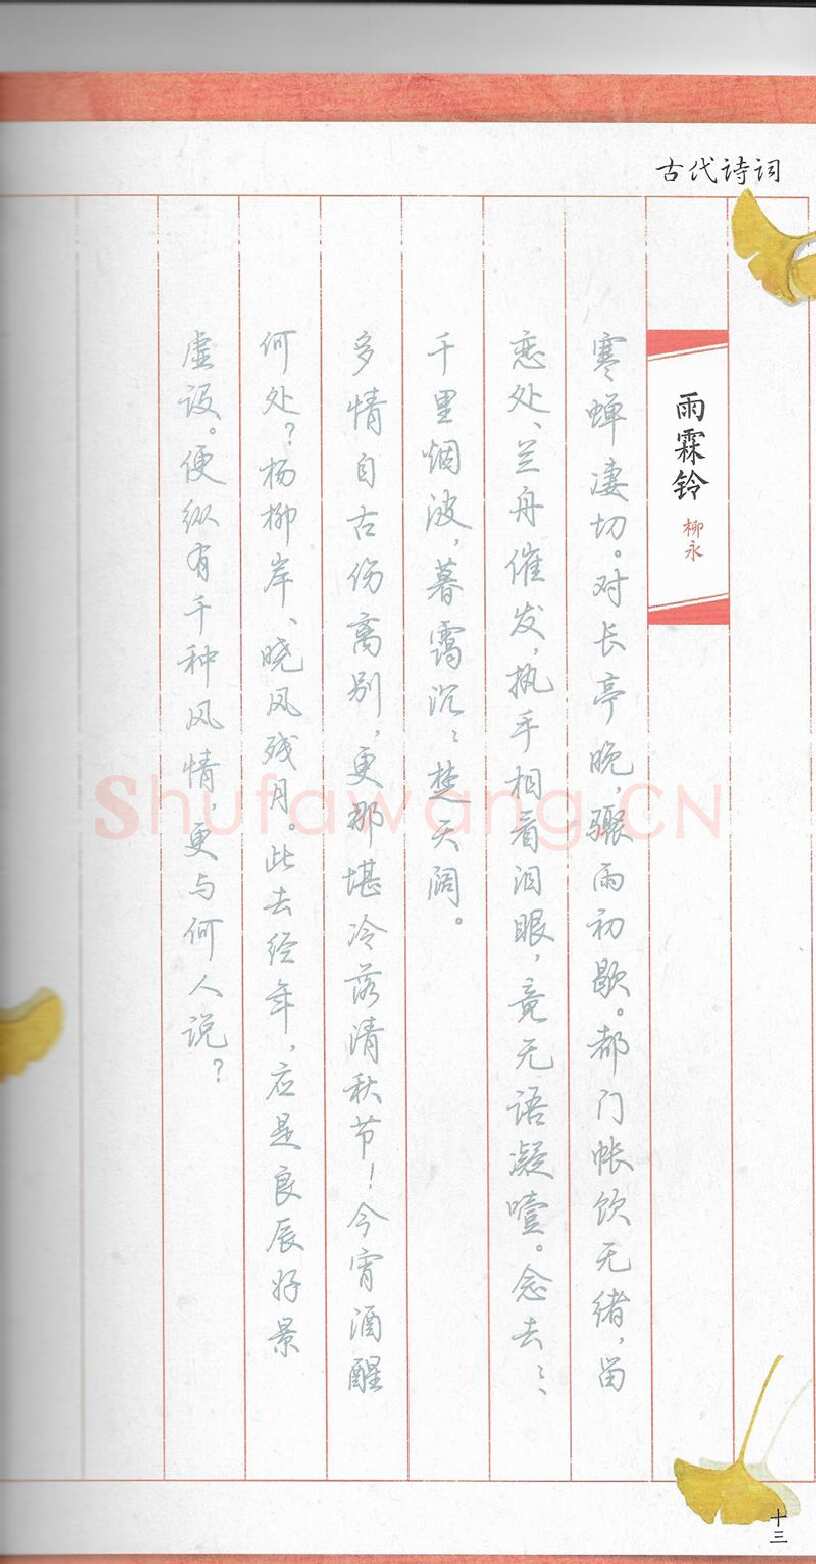 古代诗词
雨霖铃
柳永
寒蝉凄切。对长亭晚,骤雨初歇。都门帐饮无绪,留
恋处、兰舟催发,执手相看泪眼,竟无语凝噎。念去ˇ、
千里烟波,暮霭沉ˇ楚天阔。
多情自古伤离别,更那堪冷落清秋节!今宵酒醒
何处?杨柳岸、晓风残月。此去经年,应是良辰好景
虚设。便纵有千种风情,更与何人说?
十三
Shufawang.CN